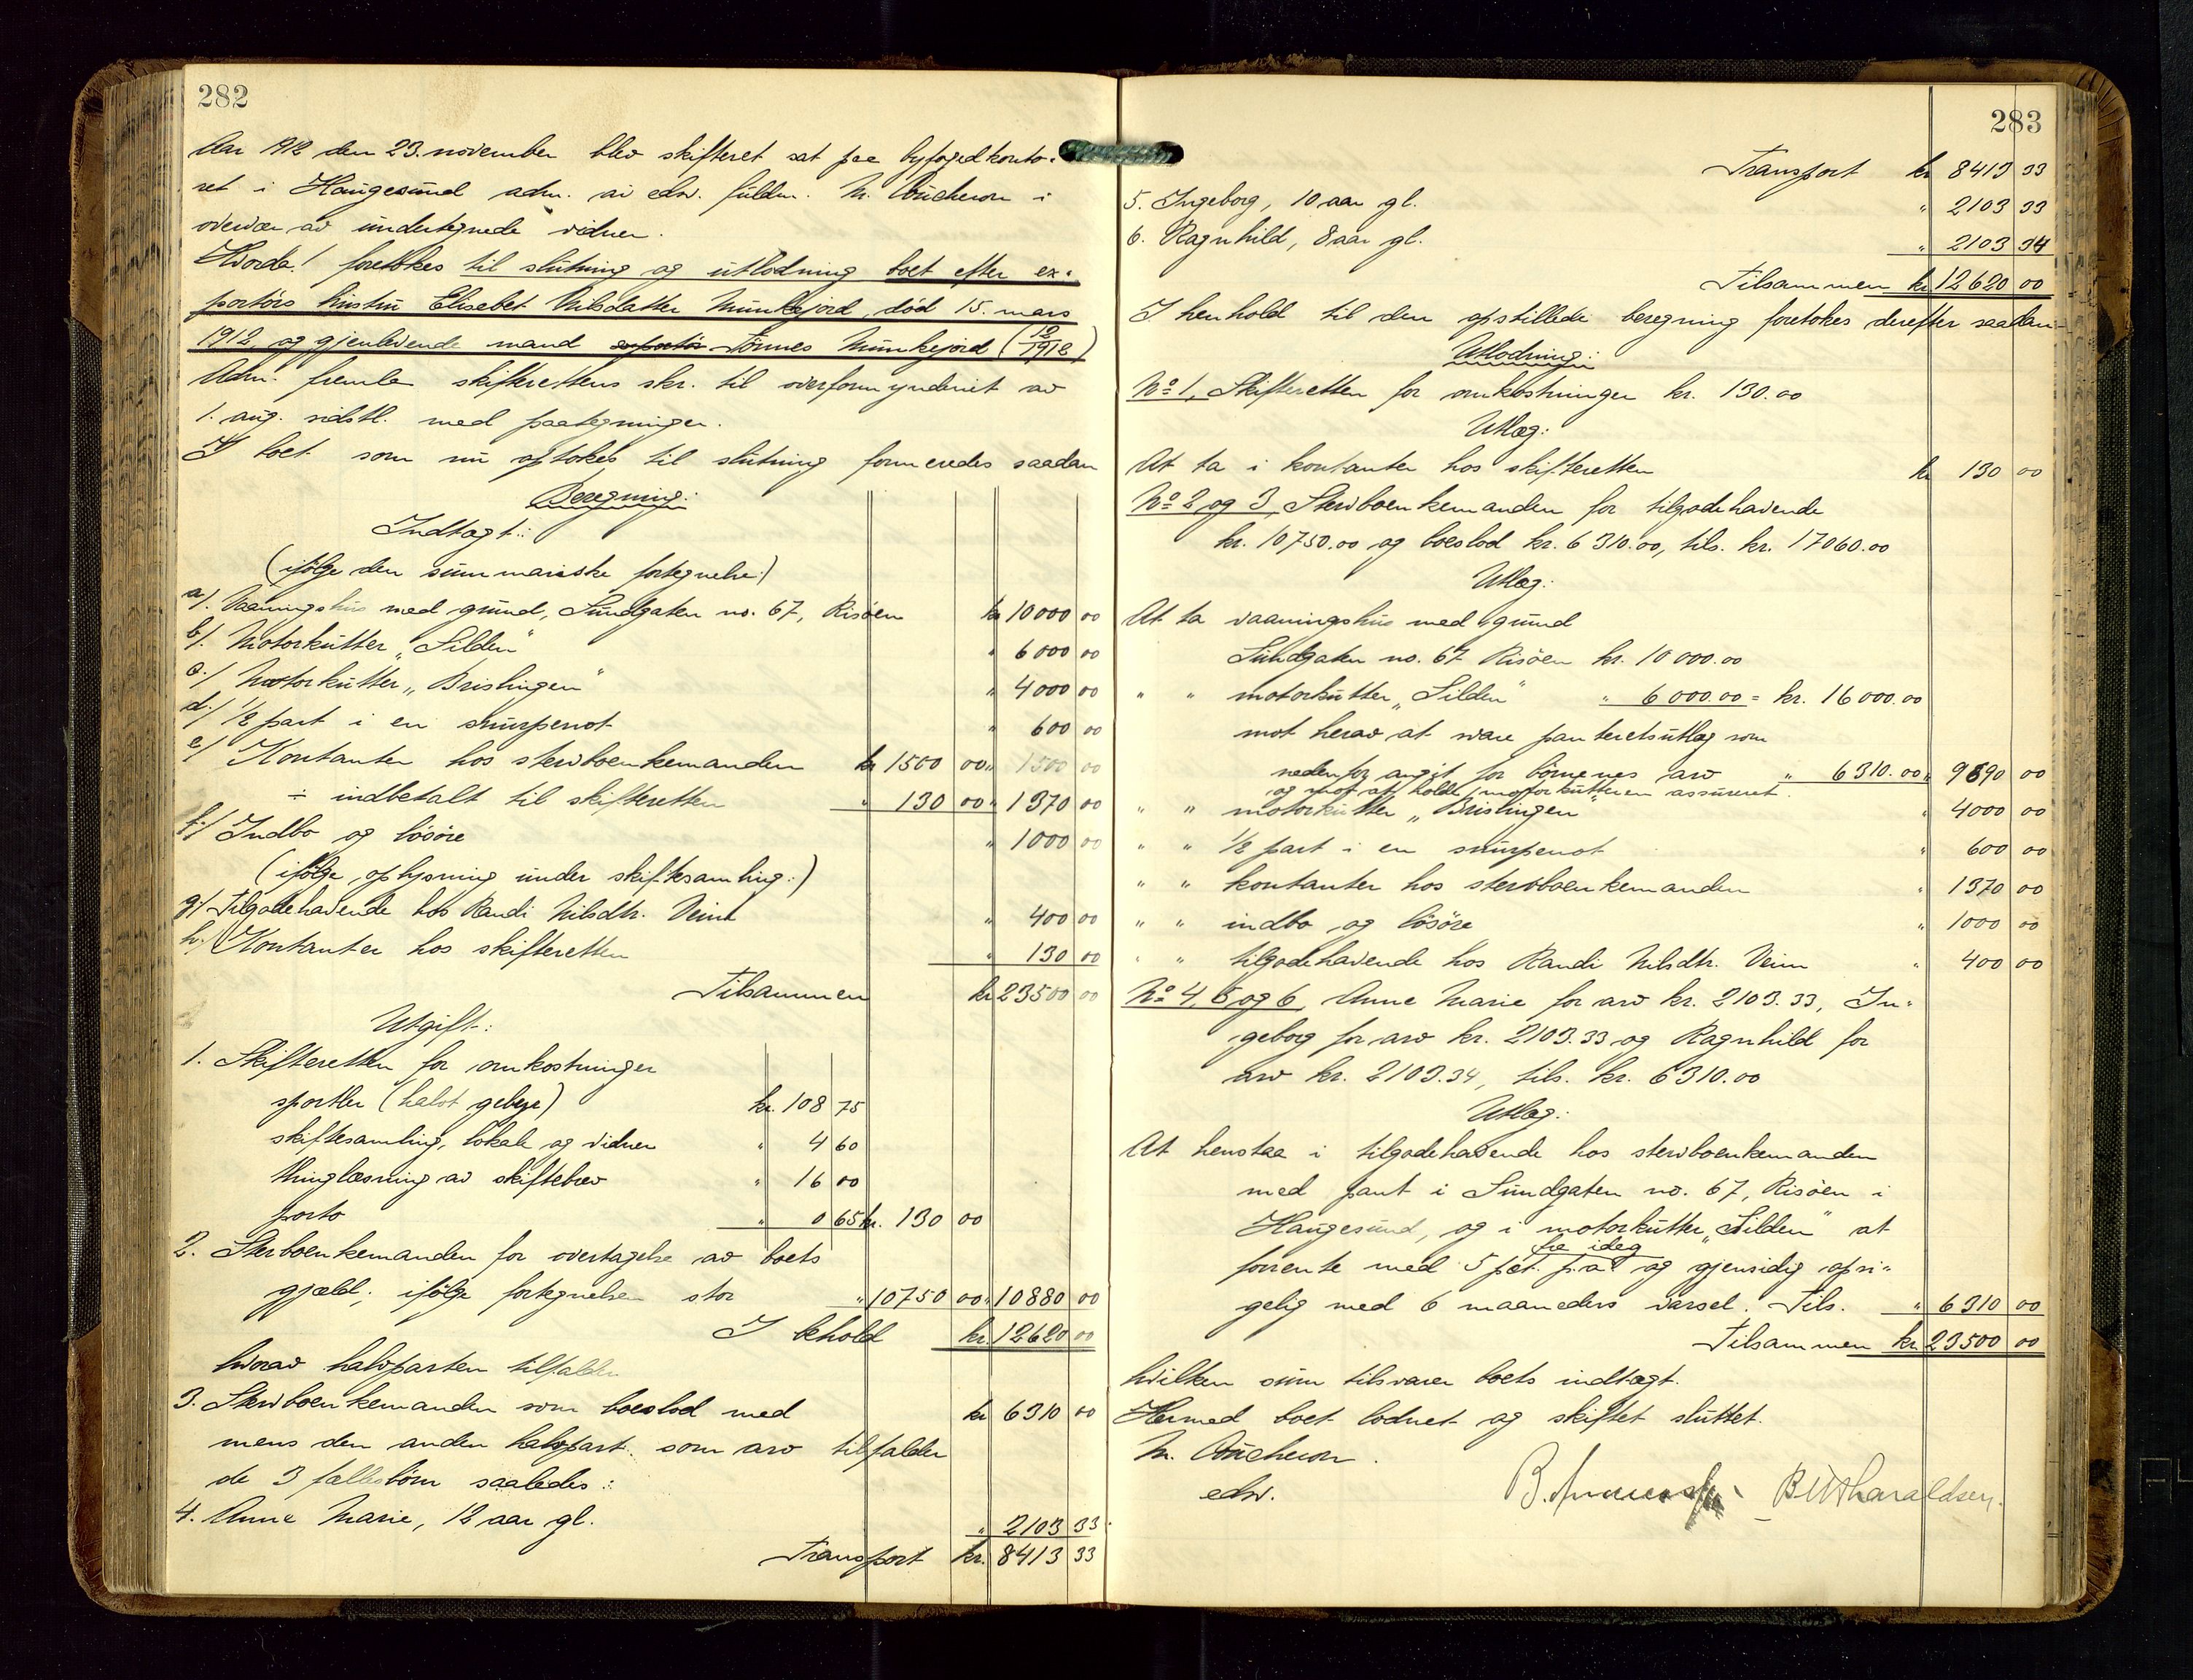 282
Aar 1912 den 23. november blev skifteret sat paa byfogedkonto-
ret i Haugesund adm. av edsv. fuldm. M. Coucheron i
overvær av undertegnede vidner.
Hvorda! foretokes til slutning og utlodning boet efter ex-
portørs hustru Elisebet Nilsdatter Munkejord, død 15. mars
1912 og gjenlevende mand exportør Tönnes Munkejord (19/1912)
Adm. fremla skifterettens skr. til overformynderiet av
1. aug. sidstl. med paategninger.
I boet som nu optokes til slutning formeredes saadan
Beregning:
Indtægt:
(ifölge den summariske fortegnelse:)
a/. Vaaningshus med grund, Sundgaten no. 67, Risöen kr 10000 00
b/. Motorkutter „Silden" " 6000 00
c./ Motorkutter „Brislingen" " 4000 00
d./ 1/2 part i en snurpenot " 600 00
e/ Kontanter hos stervboenkemanden kr 1500 00 " 1500 00
÷ indbetalt til skifteretten " 130 00 " 1370 00
f./ Indbo og lösöre " 1000 00
(ifölge oplysning under skiftesamling:)
g/ Tilgodehavende hos Randi Nilsdtr. Veim " 400 00
h./ Kontanter hos skifteretten " 130 00
Tilsammen kr 23500 00
Utgift:
1. Skifteretten for omkostninger
sportler (halvt gebyr) kr. 108 75
skiftesamling, lokale og vidner " 4 60
thinglæsning av skiftebrev " 16 00
porto " 0 65 kr. 130 00
2. Sterboenkemanden for overtagelse av boets
gjæld; ifölge fortegnelsen stor " 10750 00 " 10880 00
I behold kr. 12620 00
hvorav halvparten tilfalder
3. Stervboenkemanden som boeslod med kr 6310 00
mens den anden halvpart som arv tilfalder
de 3 fællesbörn saaledes:
4. Anne Marie, 12 aar gl. " 2103 33
Transport kr. 8413 33
283
Transport kr 8413 33
5. Ingeborg, 10 aar gl. " 2103 33
6. Ragnhild, 8 aar gl. " 2103 34
Tilsammen kr 12620 00
I henhold til den opstillede beregning foretokes derefter saadan
Utlodning:
No 1, Skifteretten for omkostninger kr. 130.00
Utlæg:
At ta i kontanter hos skifteretten kr 130 00
No 2 og 3, Stervboenkemanden for tilgodehavende
kr. 10750.00 og boeslod kr. 6310.00, tils. kr. 17060.00
Utlæg:
At ta vaaningshus med grund
Sundgaten no. 67 Risöen kr. 10000.00
" " motorkutter „Silden" " 6000.00 = kr. 16000.00
mot herav at svare panteretsutlæg som
nedenfor angit for börnenes arv " 6310.00 " 9690 00
og mot at holde motorkutteren assureret.
" " motorkutter „Brislingen" " 4000 00
" " 1/2 part i en snurpenot " 600 00
" " kontanter hos stervboenkemanden " 1370 00
" " indbo og lösöre " 1000 00
" " tilgodehavende hos Randi Nilsdtr. Veim " 400 00
No 4, 5 og 6, Anne Marie for arv kr. 2103.33, In-
geborg for arv kr. 2103.33 og Ragnhild for
arv kr. 2103.34, tils. kr. 6310.00
Utlæg:
At henstaa i tilgodehavende hos stervboenkemanden
med pant i Sundgaten no. 67, Risöen i
Haugesund, og i motorkutter „Silden" at
fra idag
forrente med 5 pct. p.a. og gjensidig opsi-
gelig med 6 maaneders varsel. Tils. " 6310 00
Tilsammen kr. 23500 00
hvilken sum tilsvarer boets indtægt.
Hermed boet loddet og skiftet sluttet.
M. Coucheron.
edsv.
B. Haraldsen.